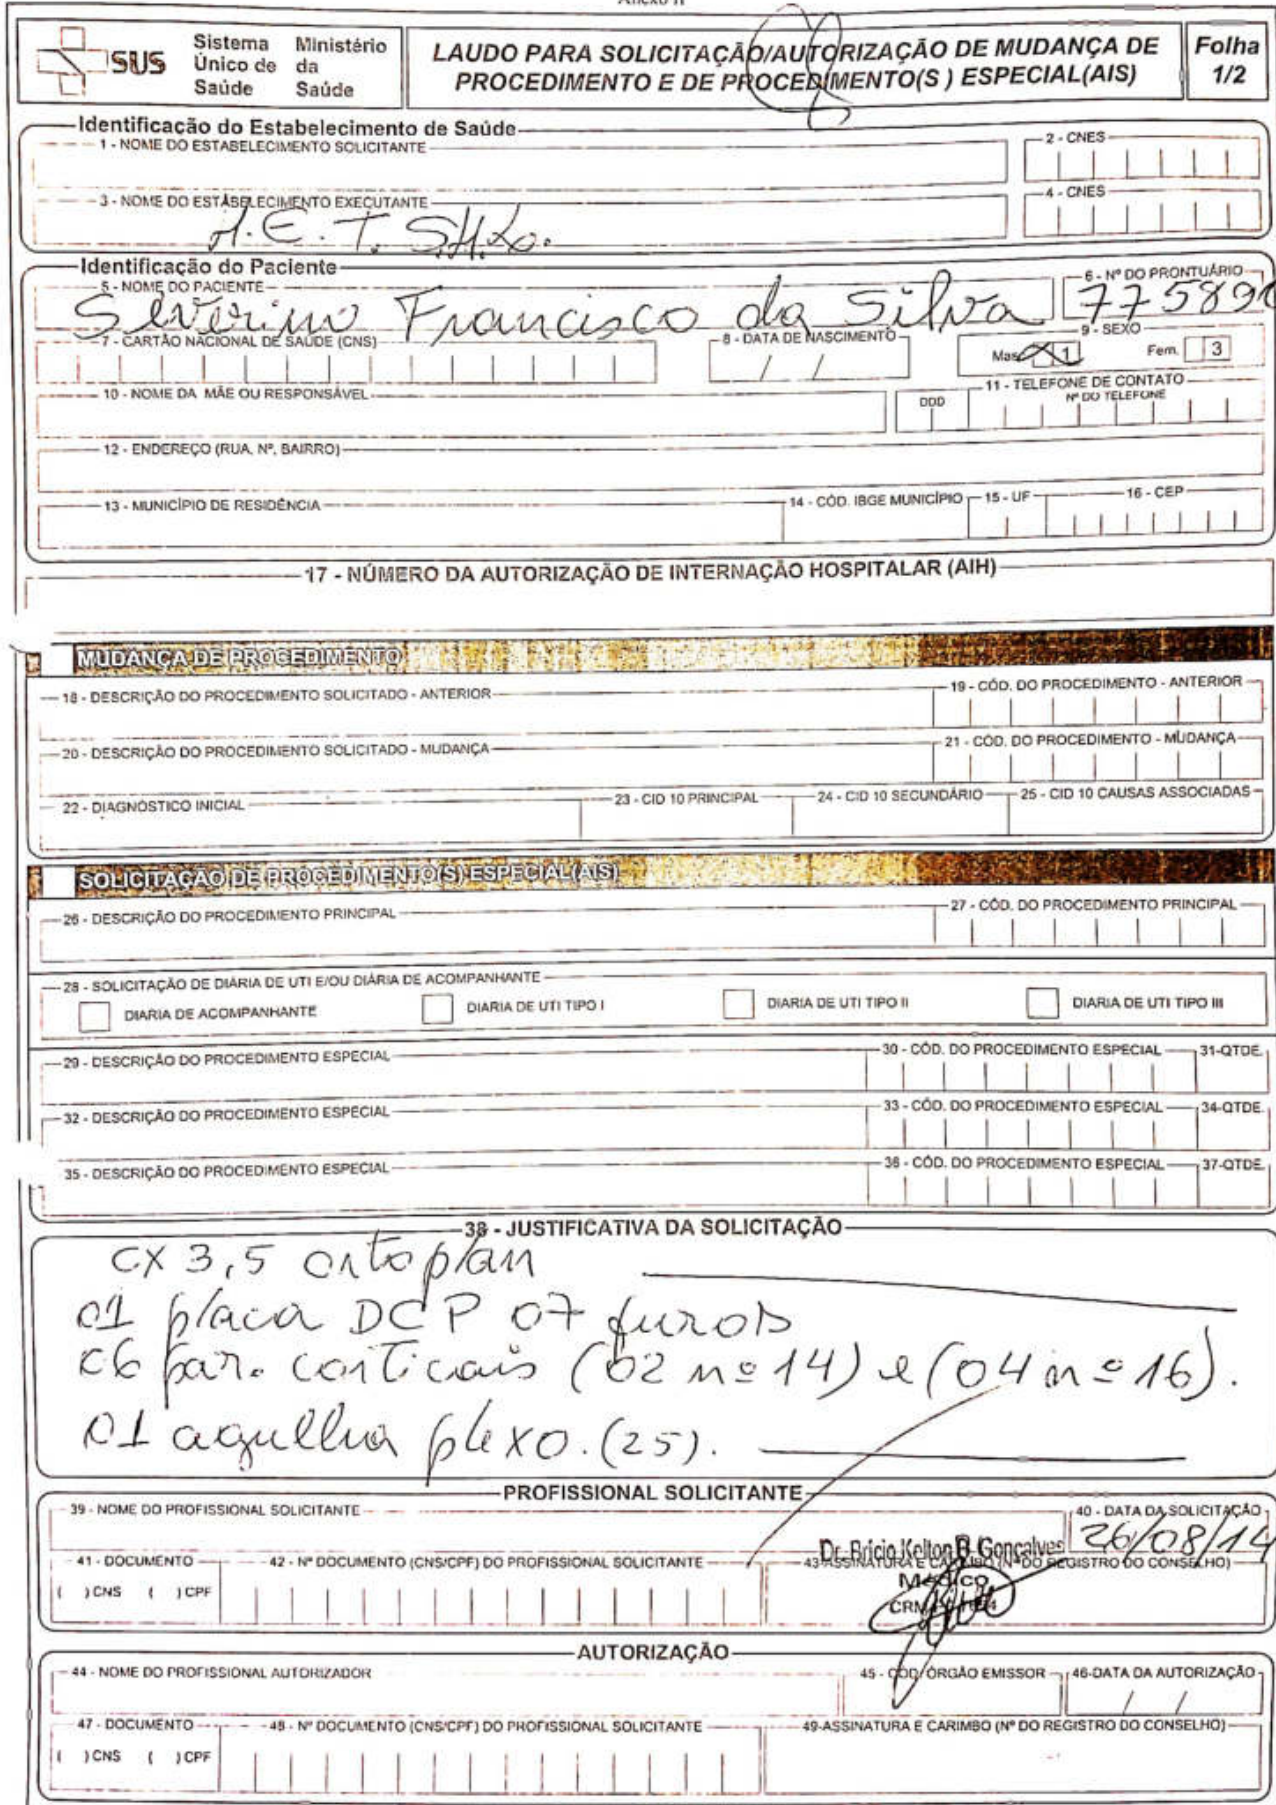 Anexo II
SUS Sistema Único de Saúde Ministério da Saúde
LAUDO PARA SOLICITAÇÃO/AUTORIZAÇÃO DE MUDANÇA DE
PROCEDIMENTO E DE PROCEDIMENTO(S ) ESPECIAL(AIS)
Folha
1/2
Identificação do Estabelecimento de Saúde
1 - NOME DO ESTABELECIMENTO SOLICITANTE
2 - CNES
3 - NOME DO ESTABELECIMENTO EXECUTANTE
4 - CNES
H.E.T.
Identificação do Paciente
5 - NOME DO PACIENTE
6 - Nº DO PRONTUÁRIO
Severino Francisco da Silva 775891
7 - CARTÃO NACIONAL DE SAÚDE (CNS)
8 - DATA DE NASCIMENTO
9 - SEXO
/ /
Mas. 1 Fem. 3
10 - NOME DA MÃE OU RESPONSÁVEL
11 - TELEFONE DE CONTATO
DDD
Nº DO TELEFONE
12 - ENDEREÇO (RUA, Nº, BAIRRO)
13 - MUNICÍPIO DE RESIDÊNCIA
14 - CÓD. IBGE MUNICÍPIO
15 - UF
16 - CEP
17 - NÚMERO DA AUTORIZAÇÃO DE INTERNAÇÃO HOSPITALAR (AIH)
MUDANÇA DE PROCEDIMENTO
18 - DESCRIÇÃO DO PROCEDIMENTO SOLICITADO - ANTERIOR
19 - CÓD. DO PROCEDIMENTO - ANTERIOR
20 - DESCRIÇÃO DO PROCEDIMENTO SOLICITADO - MUDANÇA
21 - CÓD. DO PROCEDIMENTO - MUDANÇA
22 - DIAGNÓSTICO INICIAL
23 - CID 10 PRINCIPAL
24 - CID 10 SECUNDÁRIO
25 - CID 10 CAUSAS ASSOCIADAS
SOLICITAÇÃO DE PROCEDIMENTO(S) ESPECIAL(AIS)
26 - DESCRIÇÃO DO PROCEDIMENTO PRINCIPAL
27 - CÓD. DO PROCEDIMENTO PRINCIPAL
28 - SOLICITAÇÃO DE DIARIA DE UTI E/OU DIÁRIA DE ACOMPANHANTE
DIARIA DE ACOMPANHANTE
DIARIA DE UTI TIPO I
DIARIA DE UTI TIPO II
DIARIA DE UTI TIPO III
29 - DESCRIÇÃO DO PROCEDIMENTO ESPECIAL
30 - CÓD. DO PROCEDIMENTO ESPECIAL
31-QTDE
32 - DESCRIÇÃO DO PROCEDIMENTO ESPECIAL
33 - CÓD. DO PROCEDIMENTO ESPECIAL
34-QTDE
35 - DESCRIÇÃO DO PROCEDIMENTO ESPECIAL
36 - CÓD. DO PROCEDIMENTO ESPECIAL
37-QTDE
38 - JUSTIFICATIVA DA SOLICITAÇÃO
CX 3,5 ortoplan
01 placa DCP 07 furos
06 par. corticais (02 nº 14) e (04 nº 16).
01 agulha plexo. (25).
PROFISSIONAL SOLICITANTE
39 - NOME DO PROFISSIONAL SOLICITANTE
40 - DATA DA SOLICITAÇÃO
26/08/14
Dr. Bricio Kelton B. Gonçalves
41 - DOCUMENTO
42 - Nº DOCUMENTO (CNS/CPF) DO PROFISSIONAL SOLICITANTE
43-ASSINATURA E CARIMBO (Nº DO REGISTRO DO CONSELHO)
Médico
( ) CNS ( ) CPF
CRM
AUTORIZAÇÃO
44 - NOME DO PROFISSIONAL AUTORIZADOR
45 - COD. ÓRGÃO EMISSOR
46-DATA DA AUTORIZAÇÃO
/ /
47 - DOCUMENTO
48 - Nº DOCUMENTO (CNS/CPF) DO PROFISSIONAL SOLICITANTE
49-ASSINATURA E CARIMBO (Nº DO REGISTRO DO CONSELHO)
( ) CNS ( ) CPF